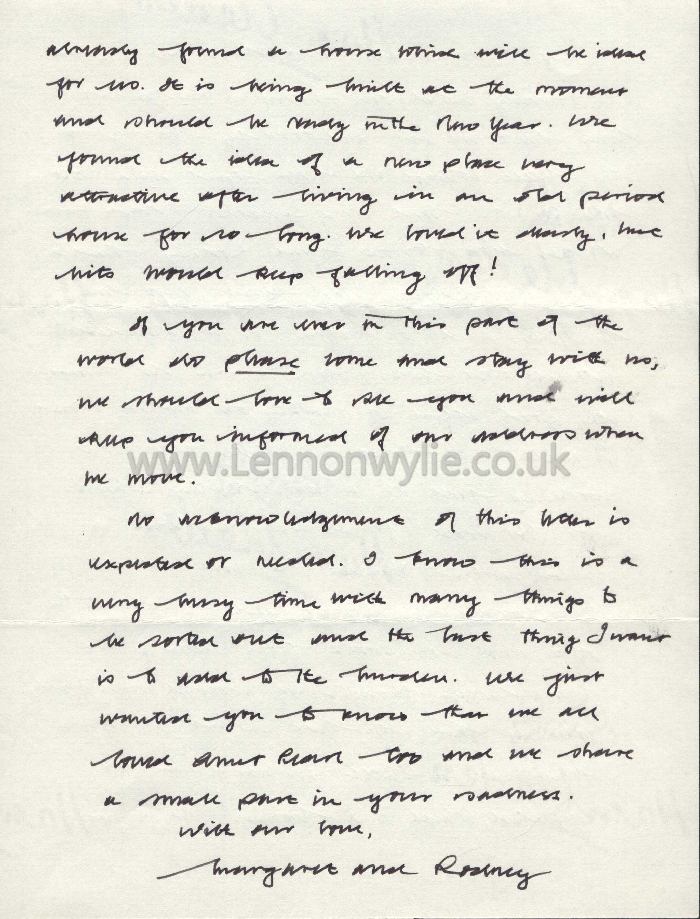 already found a house which will be ideal
for us. It is being built at the moment
and should be ready in the New Year. We
found the idea of a new place very
attractive after living in an old period
house for so long. We loved it dearly, but
bits would keep falling off!
If you are ever in this part of the
world do please come and stay with us,
we should love to see you and will
keep you informed of our address when
we move.
www.Lennonwylie.co.uk
No acknowledgement of this letter is
expected or needed. I know this is a
very busy time with many things to
be sorted out and the last thing I want
is to add to the burden. We just
wanted you to know that we all
loved Aunt Pearl too and we share
a small part in your sadness.
With our love,
Margaret and Rodney